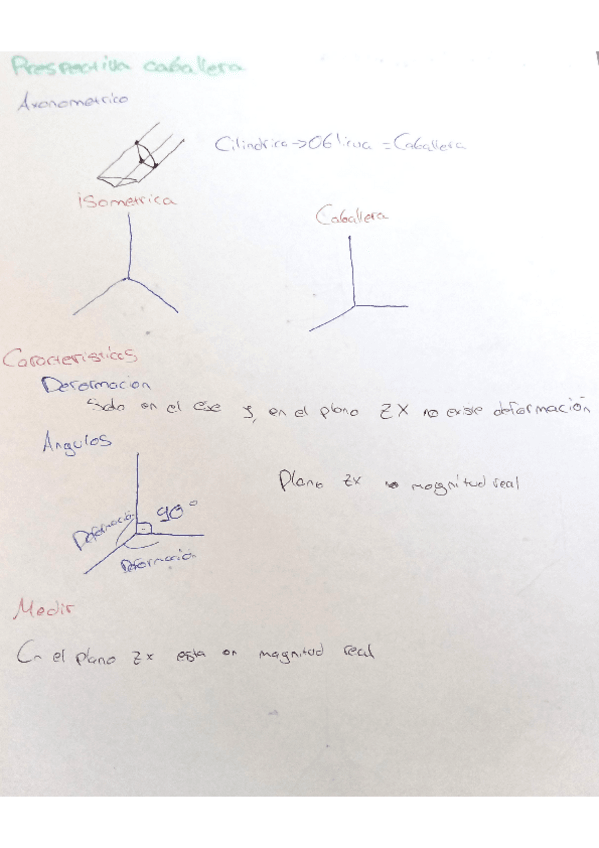 Prespectiva caballera
Axonometrico
Cilindrica → Oblicua = Caballera
isometrica
Caballera
Caracteristicas
Deformacion
Solo en el eje y, en el plano ZX no existe deformación
Angulos
Plano ZX magnitud real
90°
Deformación
Deformación
Medir
En el plano ZX esta en magnitud real